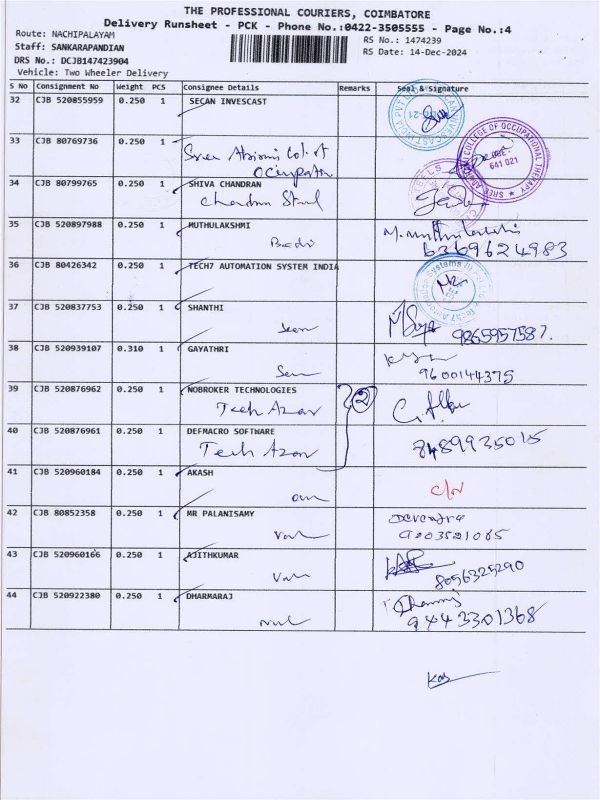 THE PROFESSIONAL COURIERS, COIMBATORE
Delivery Runsheet - PCK - Phone No.:0422-3505555 - Page No.:4
Route: NACHIPALAYAM
RS No.: 1474239
Staff: SANKARAPANDIAN
RS Date: 14-Dec-2024
DRS No.: DCJB147423904
Vehicle: Two Wheeler Delivery
S No Consignment No Weight PCS Consignee Details Remarks Seal & Signature
32 CJB 520855959 0.250 1 SECAN INVESCAST
33 CJB 80769736 0.250 1
OF OCCUPATIONAL THERAPY
641 021
34 CJB 80799765 0.250 1 SHIVA CHANDRAN
35 CJB 520897988 0.250 1 MUTHULAKSHMI
6369624983
36 CJB 80426342 0.250 1 TECH7 AUTOMATION SYSTEM INDIA
37 CJB 520837753 0.250 1 SHANTHI
9865957587.
38 CJB 520939107 0.310 1 GAYATHRI
9600144375
39 CJB 520876962 0.250 1 NOBROKER TECHNOLOGIES
Tech Azar 2
40 CJB 520876961 0.250 1 DEFMACRO SOFTWARE
Tech Azar 8489935015
41 CJB 520960184 0.250 1 AKASH
42 CJB 80852358 0.250 1 MR PALANISAMY
43 CJB 520960166 0.250 1 AJITHKUMAR
8056325290
44 CJB 520922380 0.250 1 DHARMARAJ
9443301368